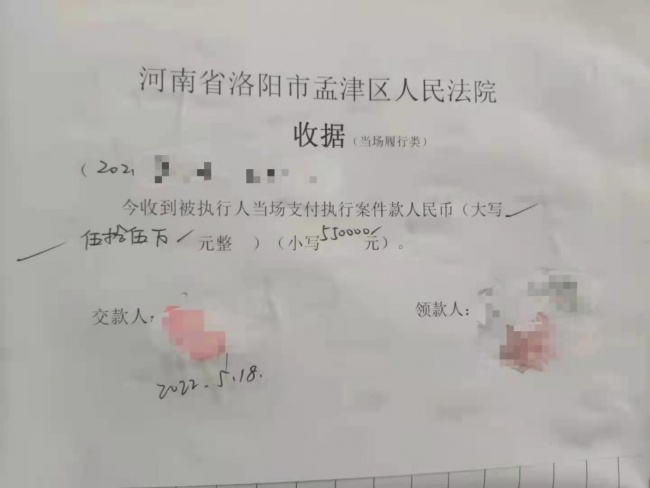 河南省洛阳市孟津区人民法院
收据（当场履行类）
（2021
今收到被执行人当场支付执行案件款人民币（大写
伍拾伍万元整 ）（小写550000元）。
交款人： 领款人：
2022.5.18.